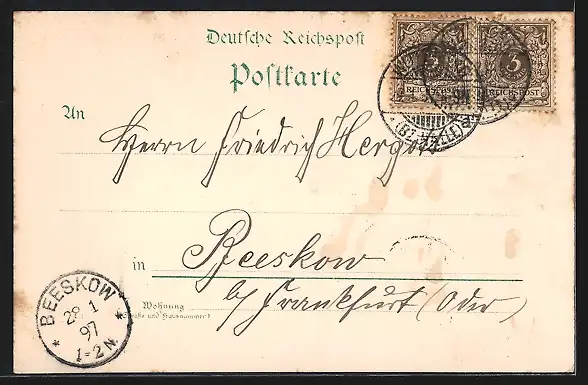 Deutsche Reichspost
Postkarte
3
REICHSPOST
3
REICHSPOST
An
Herrn Friedrich
in Beeskow
b/ Frankfurt (Oder)
Wohnung
(Straße und Hausnummer)
BEESKOW
28 1
97
1-2 N.